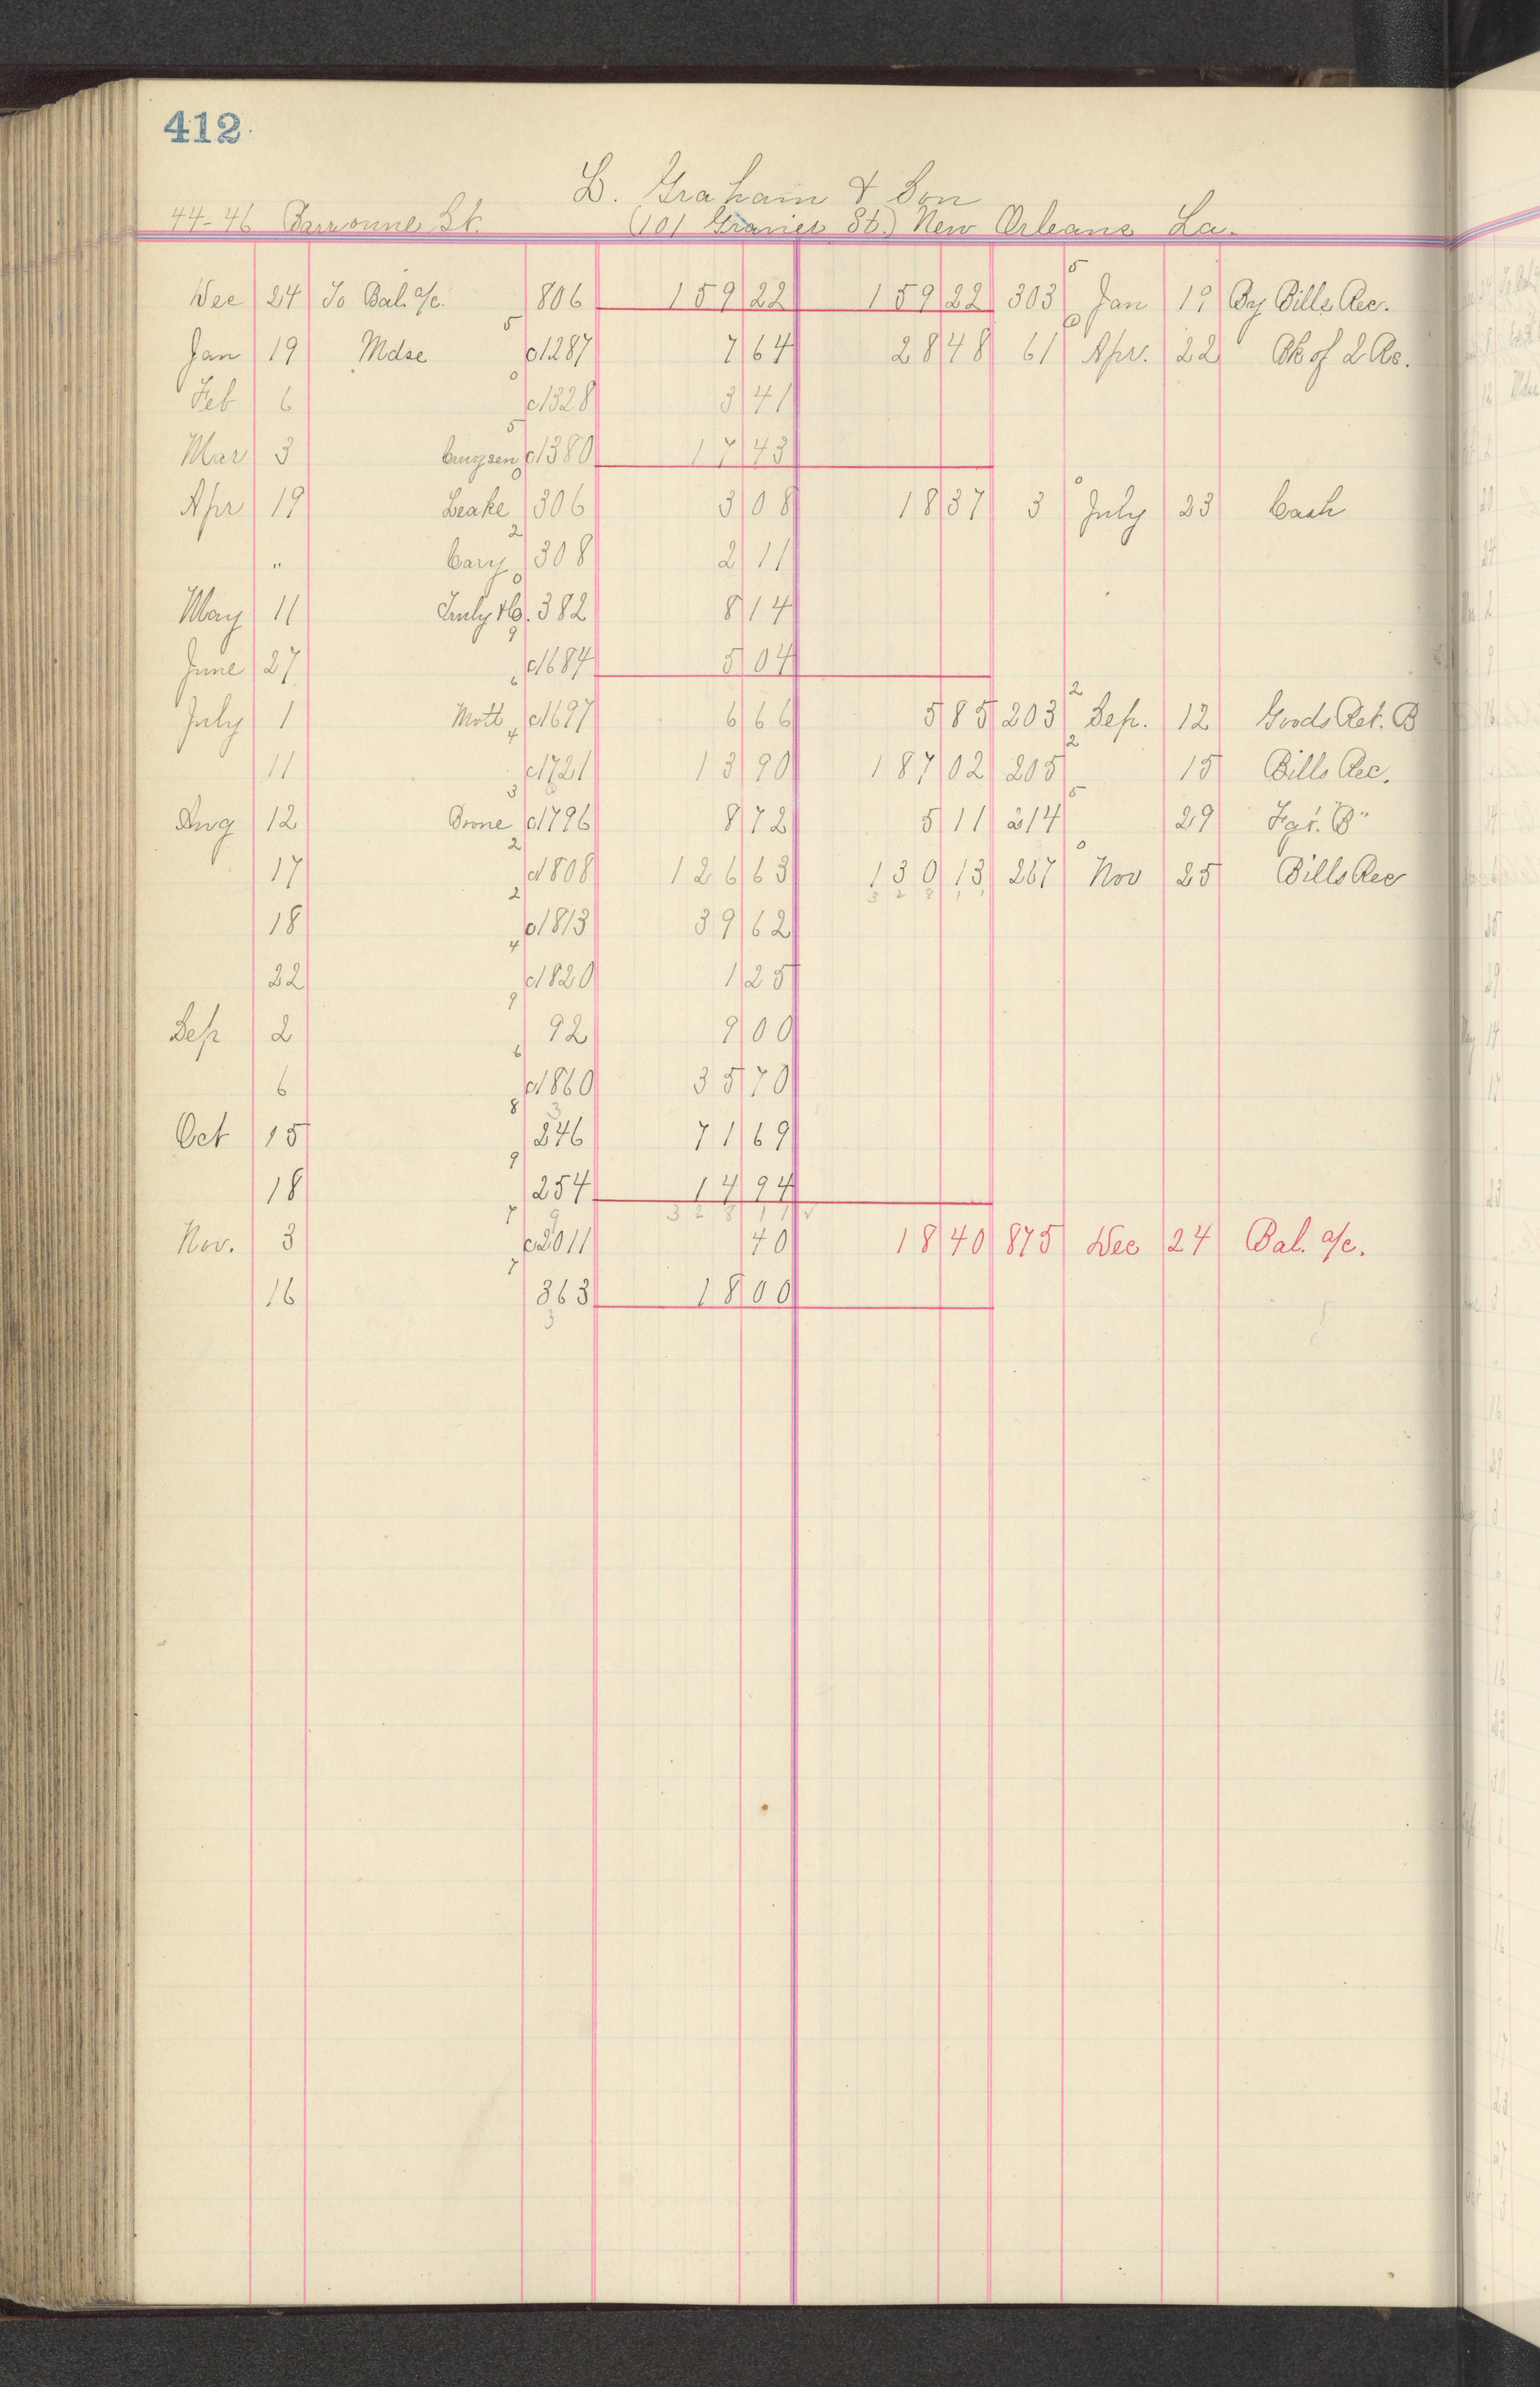 412
L. Graham & Son
44-46 Barronne St. (101 Gravier St.) New Orleans La.
Dec 24 To Bal. a/c. 806 159 22 159 22 303 5 Jan 19 By Bills Rec.
Jan 19 Mdse 5 c1287 7 64 28 48 61 6 Apr. 22 Ck of 2 Rs.
Feb 6 0 c1328 3 41
Mar 3 5 c1380 17 43
Apr 19 Leake 0 306 3 08 18 37 3 0 July 23 Cash
" Cary 2 308 2 11
May 11 Truly & Co. 0 382 8 14
June 27 9 c1684 5 04
July 1 Mott 6 c1697 6 66 5 85 203 2 Sep. 12 Goods Ret. B
11 4 c1721 13 90 187 02 205 2 15 Bills Rec.
Aug 12 Boone 3 c1796 8 72 5 11 214 5 29 Fgt. "B"
17 2 c1808 126 63 130 13 267 0 Nov 25 Bills Rec
328 11
18 2 c1813 39 62
22 4 c1820 1 25
Sep 2 9 92 9 00
6 6 c1860 35 70
Oct 15 8 246 71 69
18 9 254 14 94
328 11 ✓
Nov. 3 7 c2011 40 18 40 875 Dec 24 Bal. a/c.
16 7 363 18 00
3